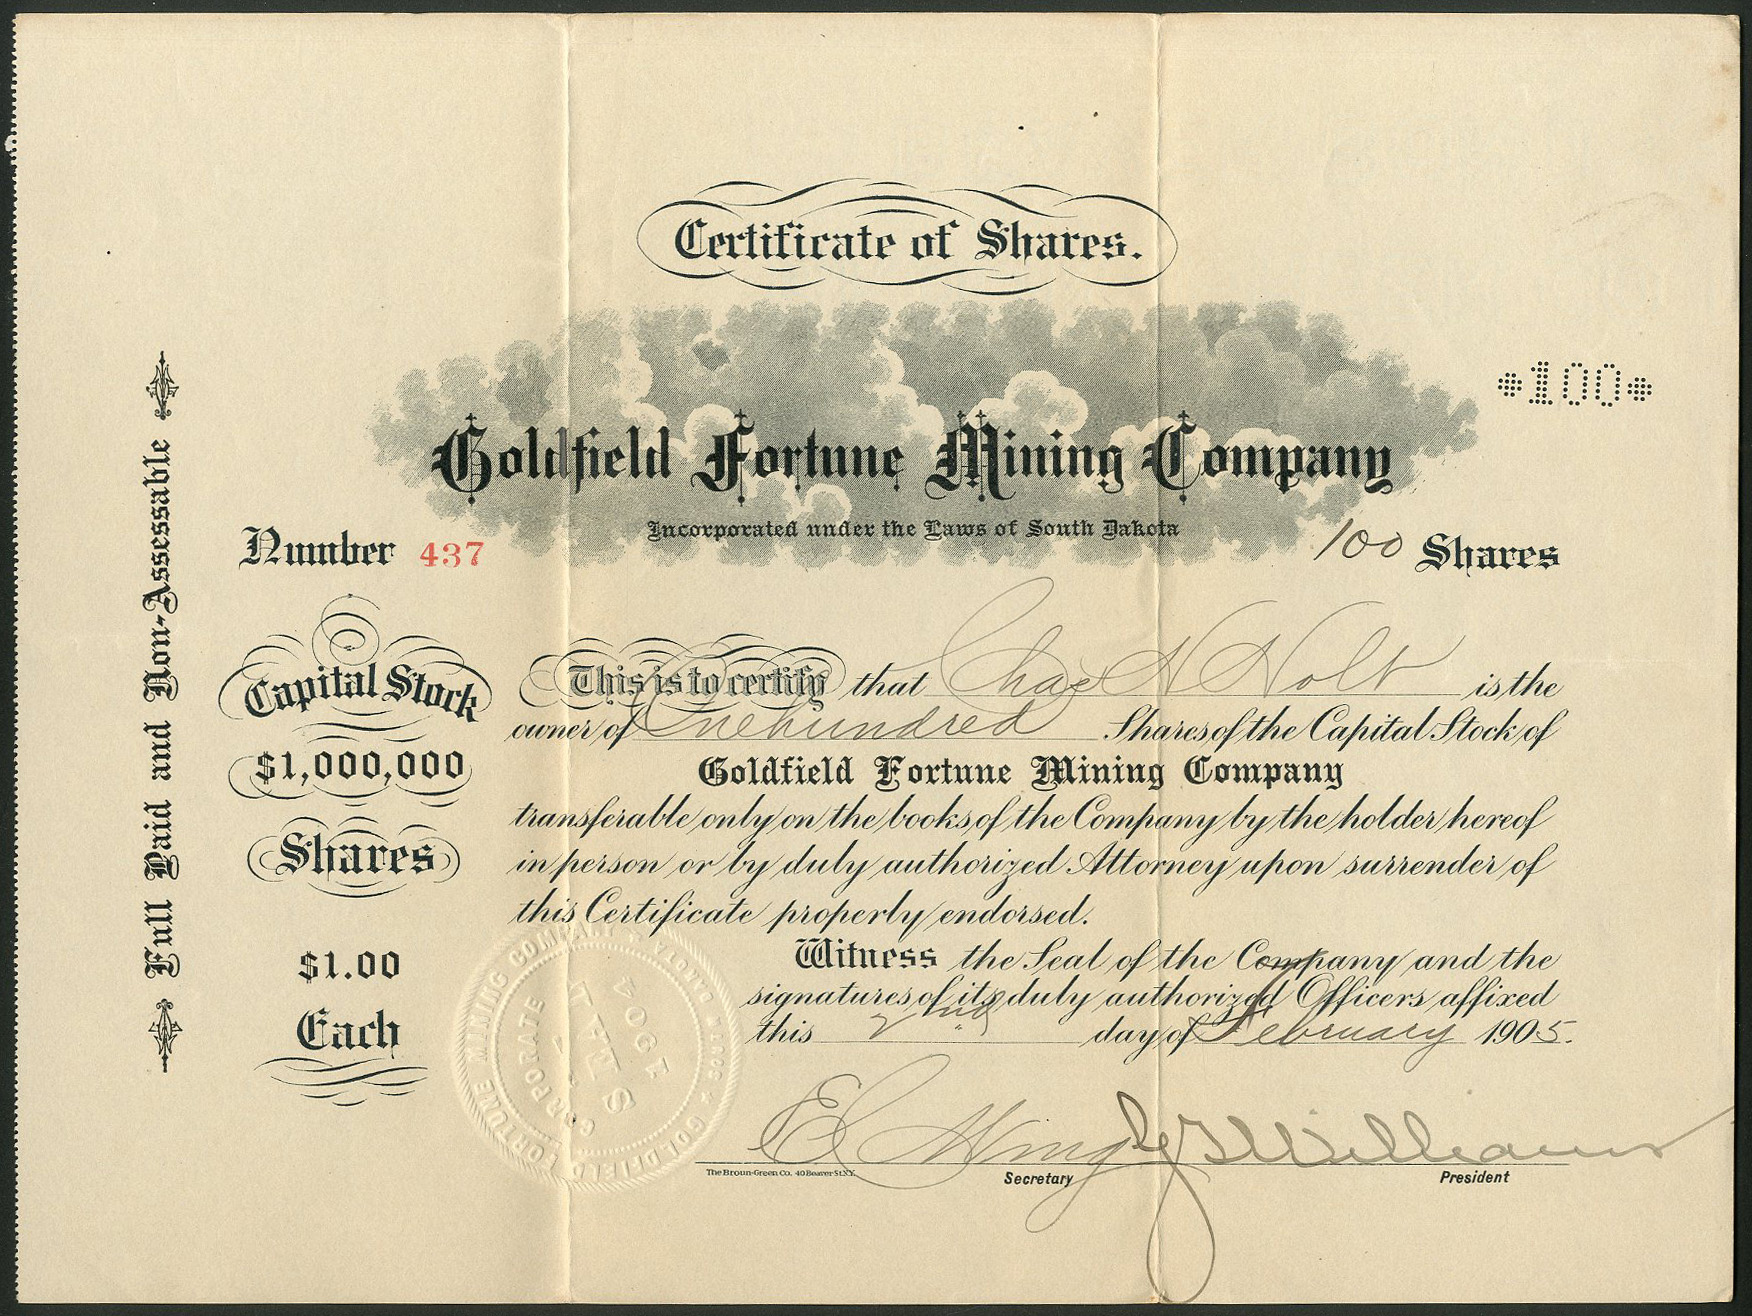 Certificate of Shares.
*100*
Goldfield Fortune Mining Company
Incorporated under the Laws of South Dakota
Number 437
100 Shares
Full Paid and Non-Assessable
Capital Stock
$1,000,000
Shares
$1.00
Each
This is to certify that Chas H Holt is the
owner of One hundred Shares of the Capital Stock of
Goldfield Fortune Mining Company
transferable only on the books of the Company by the holder hereof
in person or by duly authorized Attorney upon surrender of
this Certificate properly endorsed.
Witness the Seal of the Company and the
signatures of its duly authorized Officers affixed
this 2nd day of February 1905.
GOLDFIELD FORTUNE MINING COMPANY * SOUTH DAKOTA *
CORPORATE
SEAL
1904
Williams
The Broun-Green Co. 40 Beaver St. N.Y.
Secretary
President